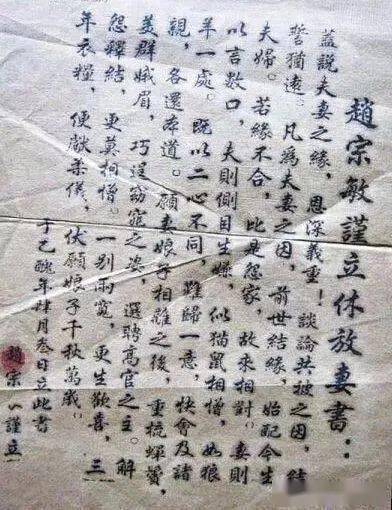 趙宗敏謹立休放妻書：
蓋説夫妻之緣，恩深義重！談論共被之因，結
誓猶遠。凡爲夫妻之因，前世結緣，始配今生
夫婦。若緣不合，此是怨家，故來相對。妻則
以言數口，夫則側目生嫌，似猫鼠相憎，如狼
羊一處。既以二心不同，難歸一意，快會及諸
親，各還本道。願妻娘子相離之後，重梳蟬鬢，
美群娥眉，巧逞窈窕之姿，選聘高官之主。解
怨釋結，更莫相憎。一别兩寬，更生歡喜，三
年衣糧，便獻柔儀，伏願娘子千秋萬歲。
于乙醜年肆月叁日立此書
趙宗謹立